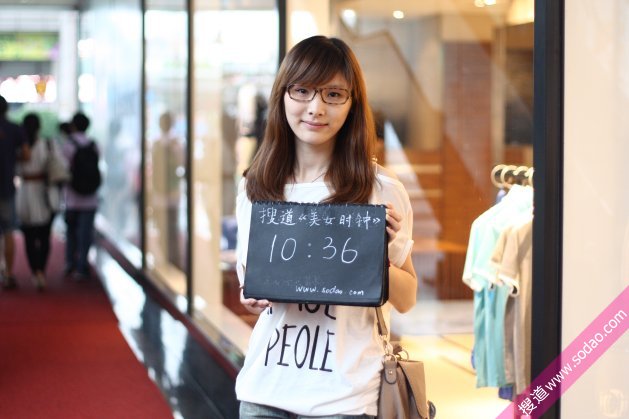 搜道《美女时钟》
10:36
www.sodao.com
PEOLE
搜道www.sodao.com